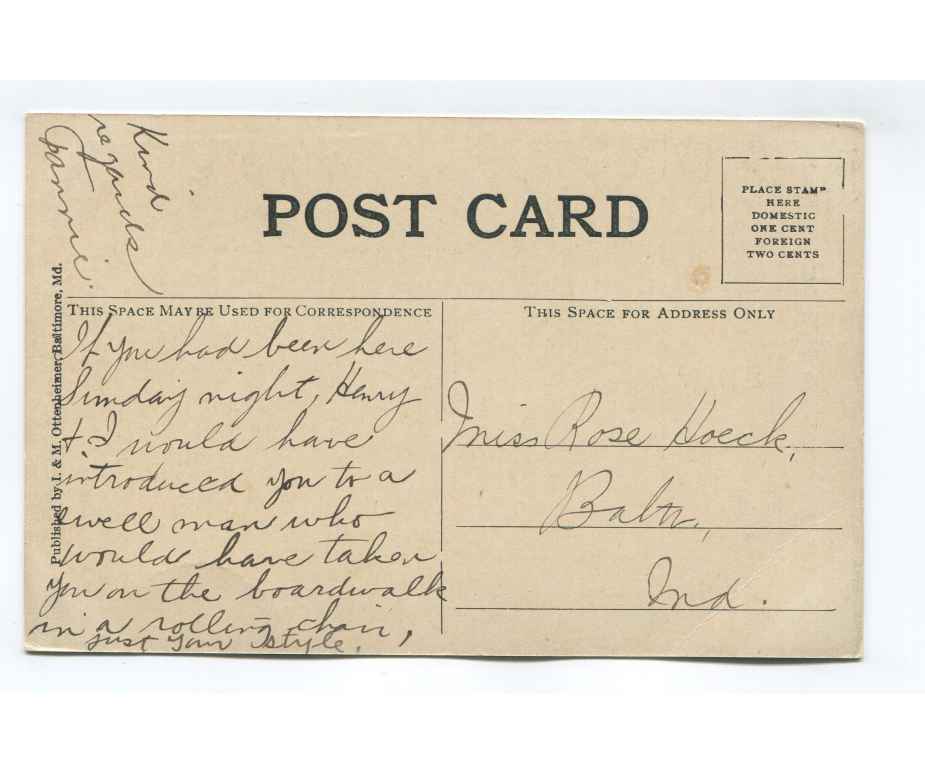 Kind
regards
Fannie
POST CARD
PLACE STAMP
HERE
DOMESTIC
ONE CENT
FOREIGN
TWO CENTS
Published by I. & M. Ottenheimer, Baltimore, Md.
THIS SPACE MAY BE USED FOR CORRESPONDENCE
If you had been here
Sunday night, Henry
& I would have
introduced you to a
swell man who
would have taken
you on the boardwalk
in a rolling chair,
just your style.
THIS SPACE FOR ADDRESS ONLY
Miss Rose Hoeck,
Balto.,
Md.